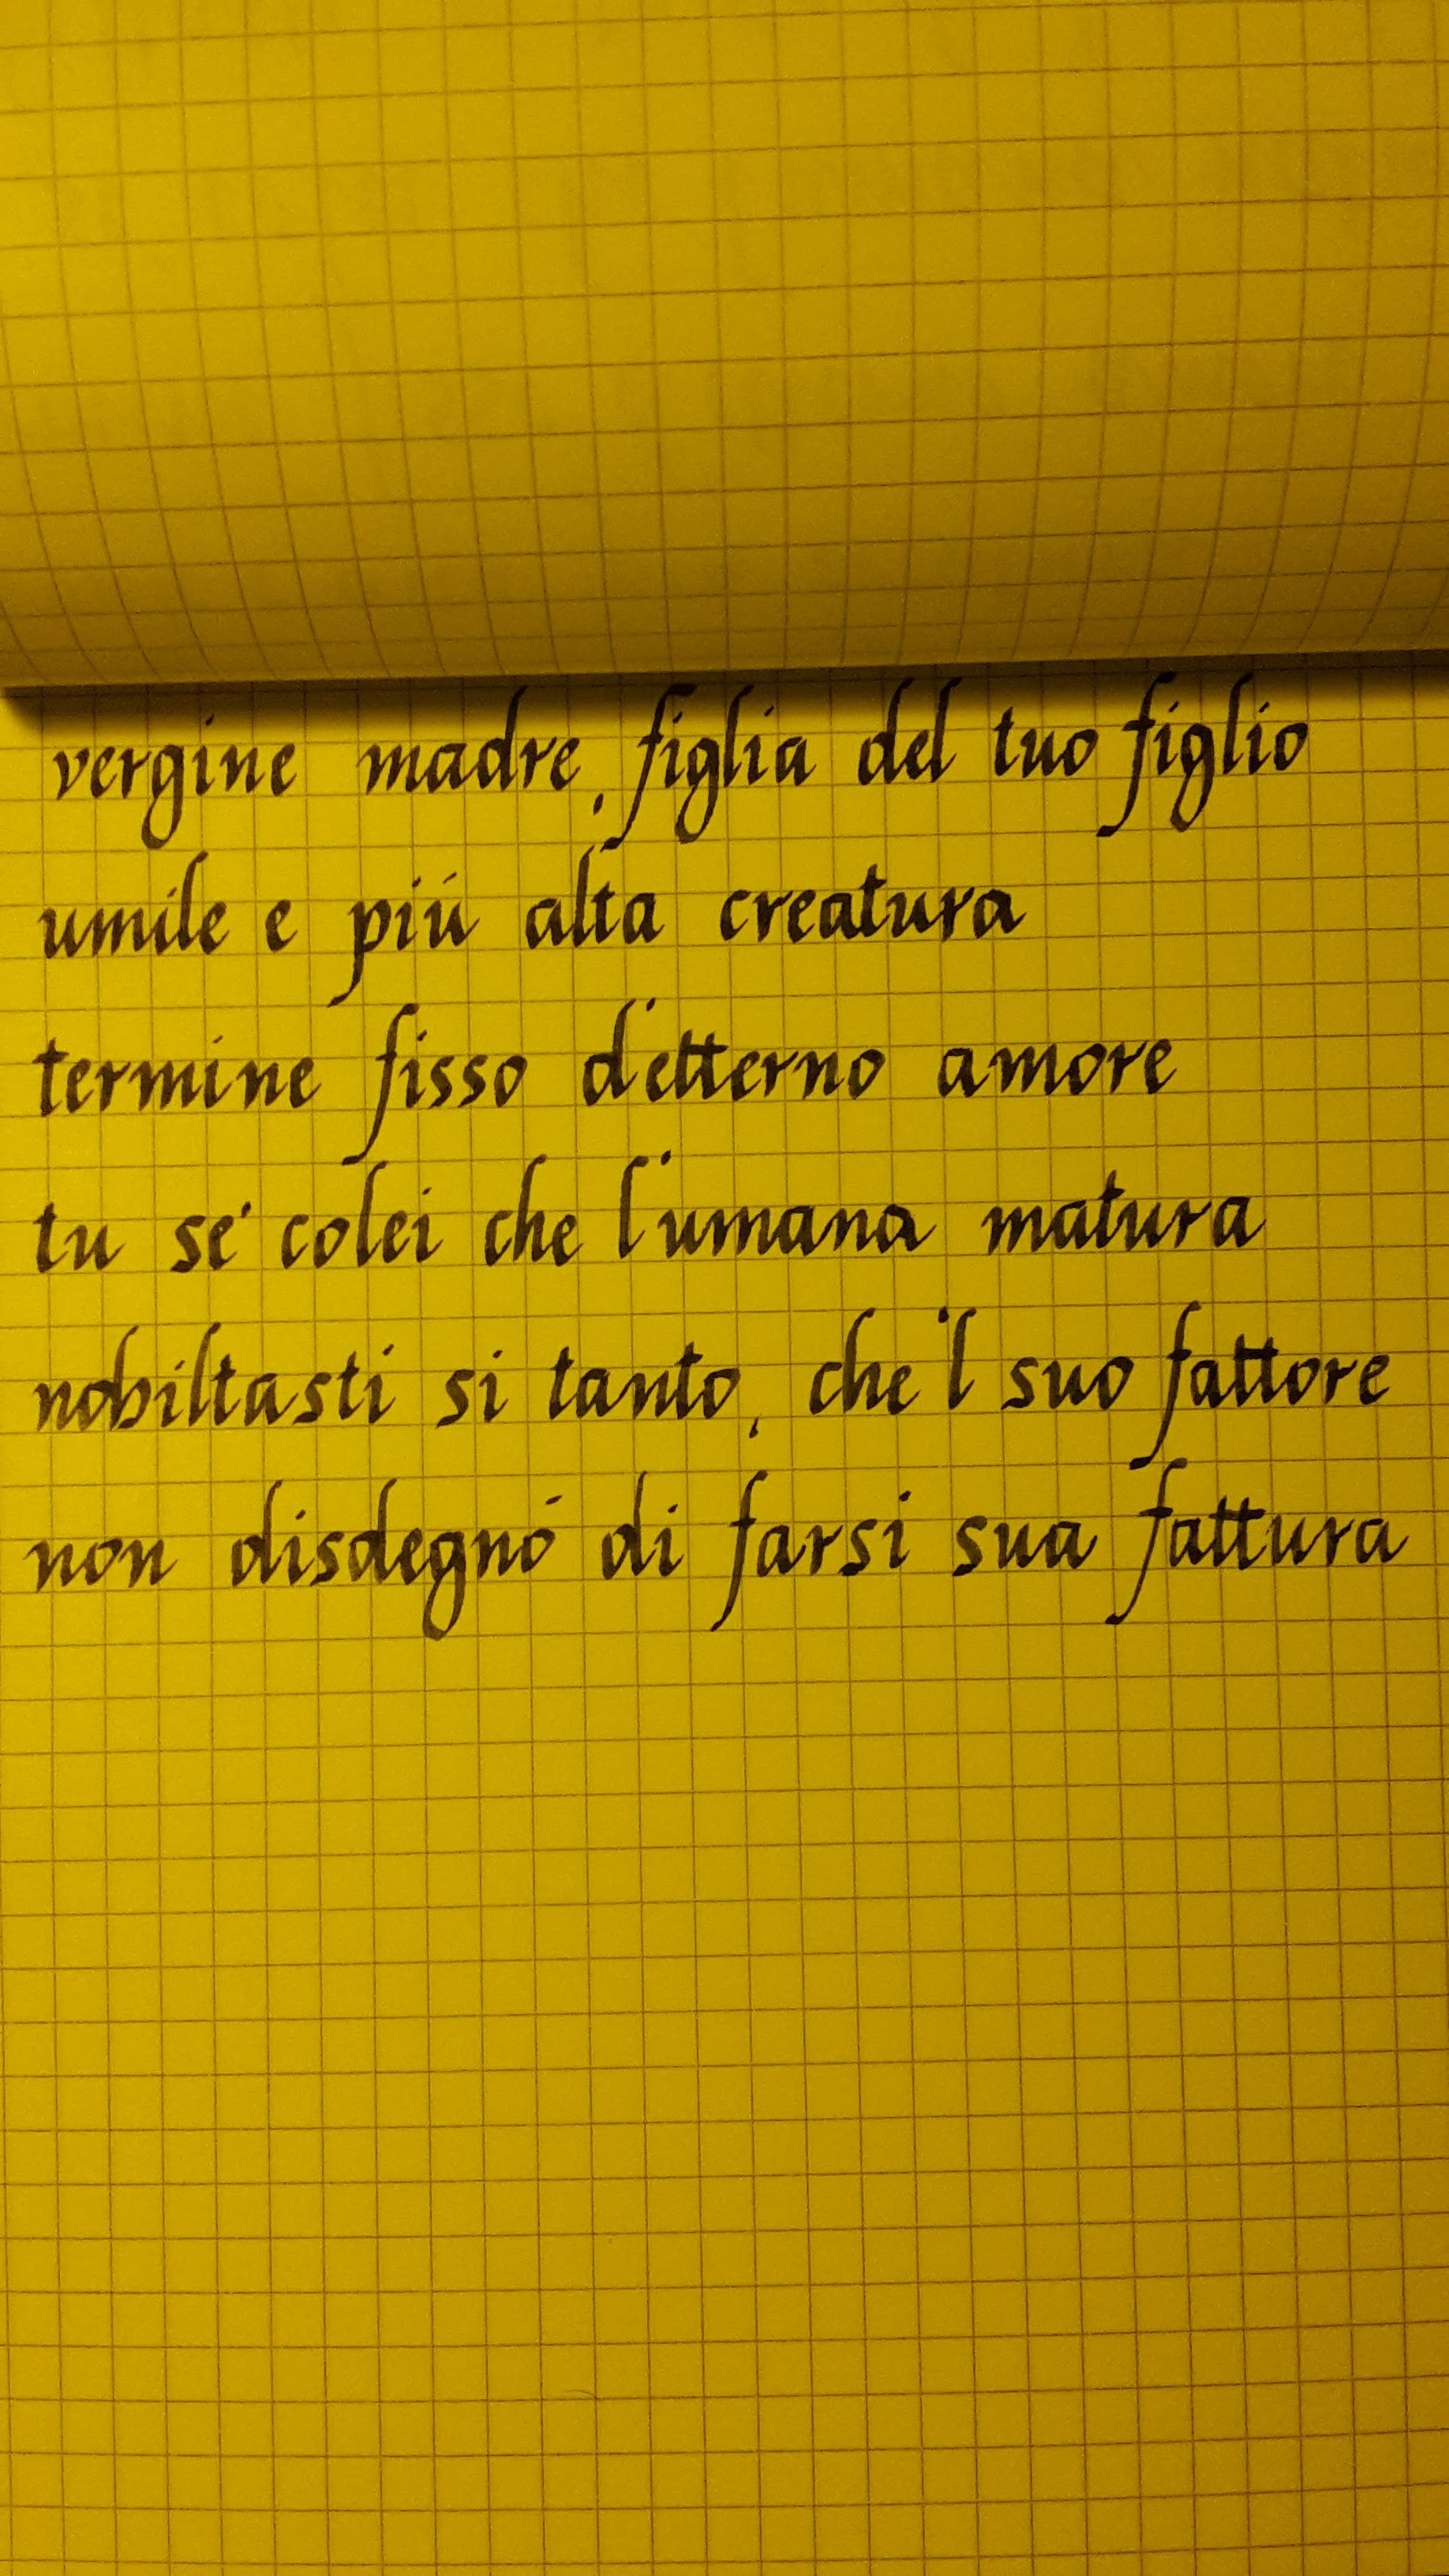 vergine madre, figlia del tuo figlio
umile e piú alta creatura
termine fisso d'etterno amore
tu se' colei che l'umana matura
nobiltasti si tanto, che 'l suo fattore
non disdegnó di farsi sua fattura